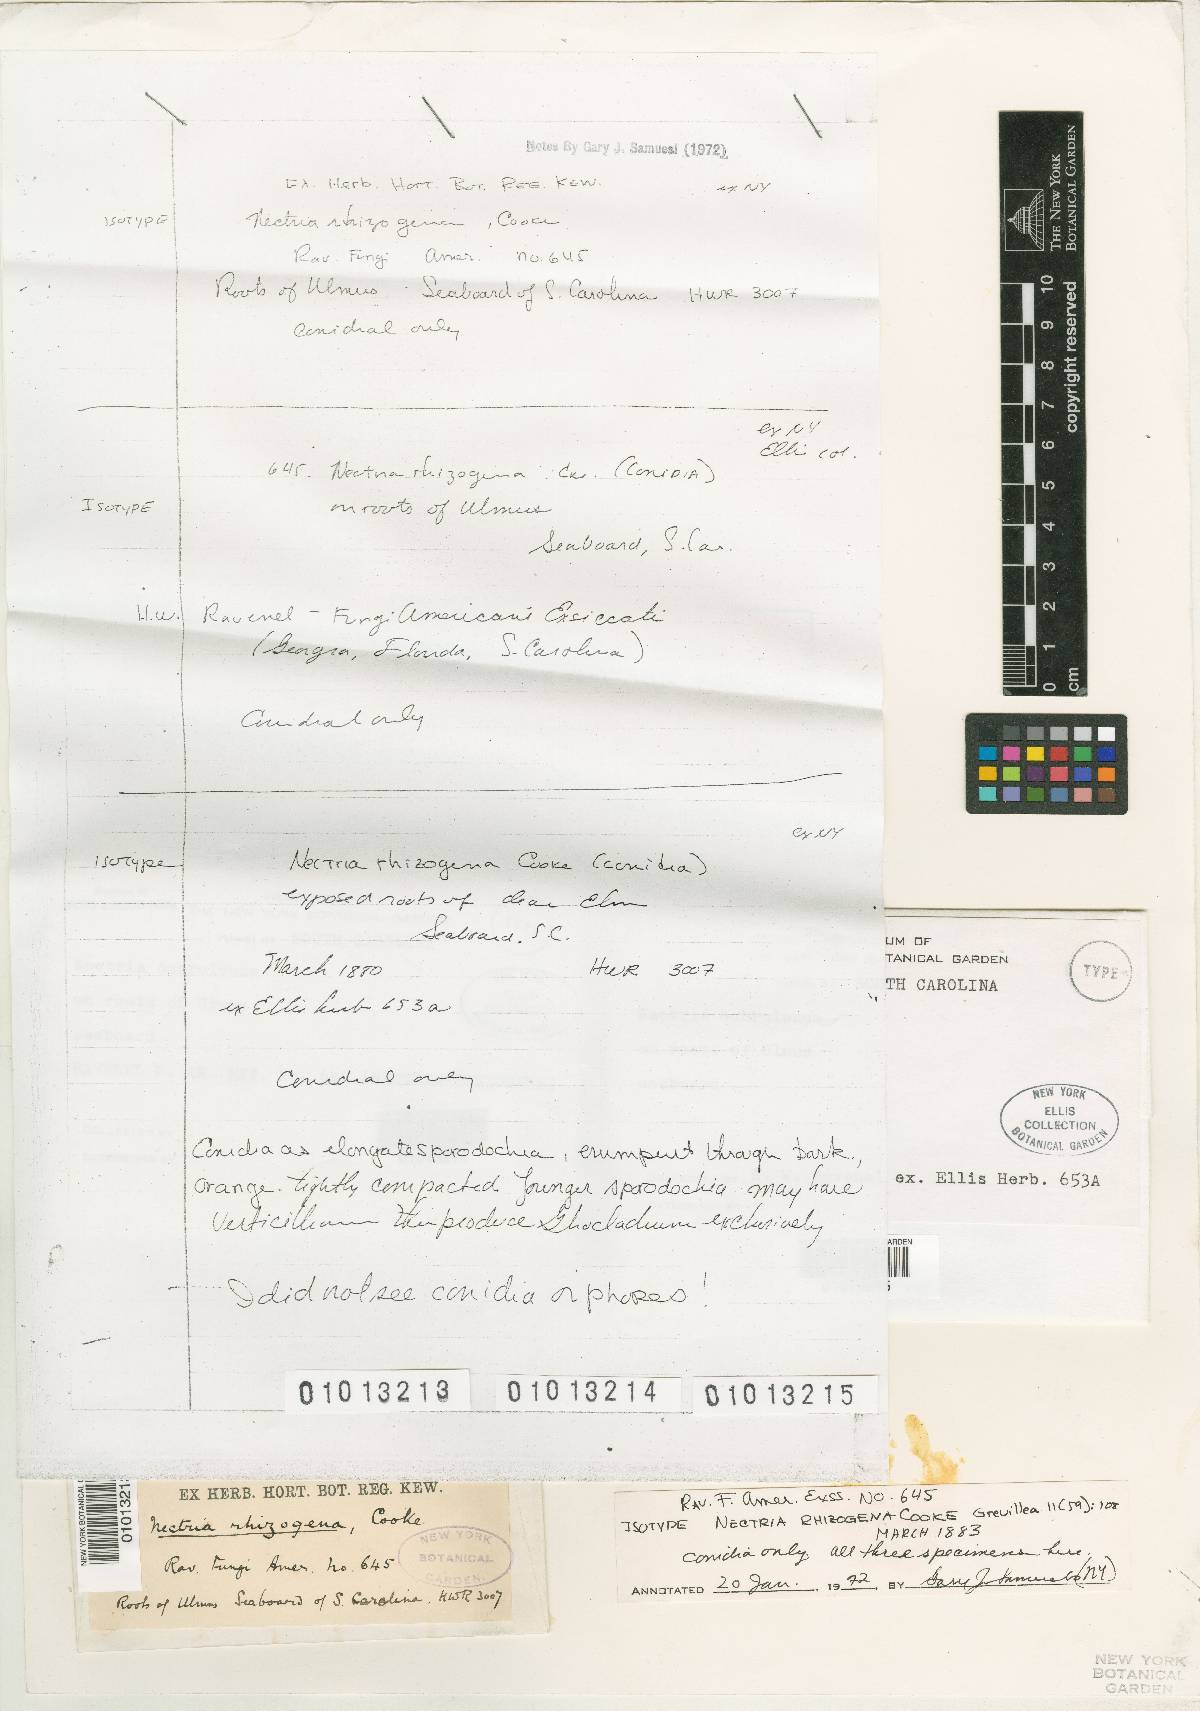 Notes By Gary J. Samuesl (1972)
Ex. Herb. Hort. Bot. Reg. Kew.
ex NY
ISOTYPE
Nectria rhizogena, Cooke
Rav. Fungi Amer. no. 645
Roots of Ulmus Seaboard of S. Carolina HWR 3007
conidial only
ex NY
Ellis col.
645. Nectria rhizogena Cke. (CONIDIA)
ISOTYPE
on roots of Ulmus
Seaboard, S. Car.
H.W. Ravenel - Fungi Americani Exsiccati
(Georgia, Florida, S. Carolina)
Conidial only
ex NY
ISOTYPE
Nectria rhizogena Cooke (conidia)
exposed roots of Elm
Seaboard. S.C.
March 1880
HWR 3007
ex Ellis herb 653a
Conidial only
Conidia as elongate sporodochia, erumpent through bark,
orange. tightly compacted Younger sporodochia may have
Verticillium then produce Gliocladium exclusively
I did not see conidia or phores!
01013213
01013214
01013215
UM OF
TANICAL GARDEN
TH CAROLINA
TYPE
NEW YORK
ELLIS
COLLECTION
BOTANICAL GARDEN
ex. Ellis Herb. 653A
ARDEN
5
NEW YORK BOTANICAL
0101321
EX HERB. HORT. BOT. REG. KEW.
Nectria rhizogena, Cooke
Rav. Fungi Amer. No. 645
Roots of Ulmus Seaboard of S. Carolina. HWR 3007
NEW YORK
BOTANICAL
GARDEN.
RAV. F. Amer. Exss. NO. 645
ISOTYPE NECTRIA RHIZOGENA COOKE Grevillea 11(59): 108
MARCH 1883
conidia only all three specimens here.
ANNOTATED 20 Jan. 1972 BY Gary J. Samuels (NY)
NEW YORK
BOTANICAL
GARDEN
THE NEW YORK
BOTANICAL GARDEN
copyright reserved
10
9
8
7
6
5
4
3
2
1
0
cm